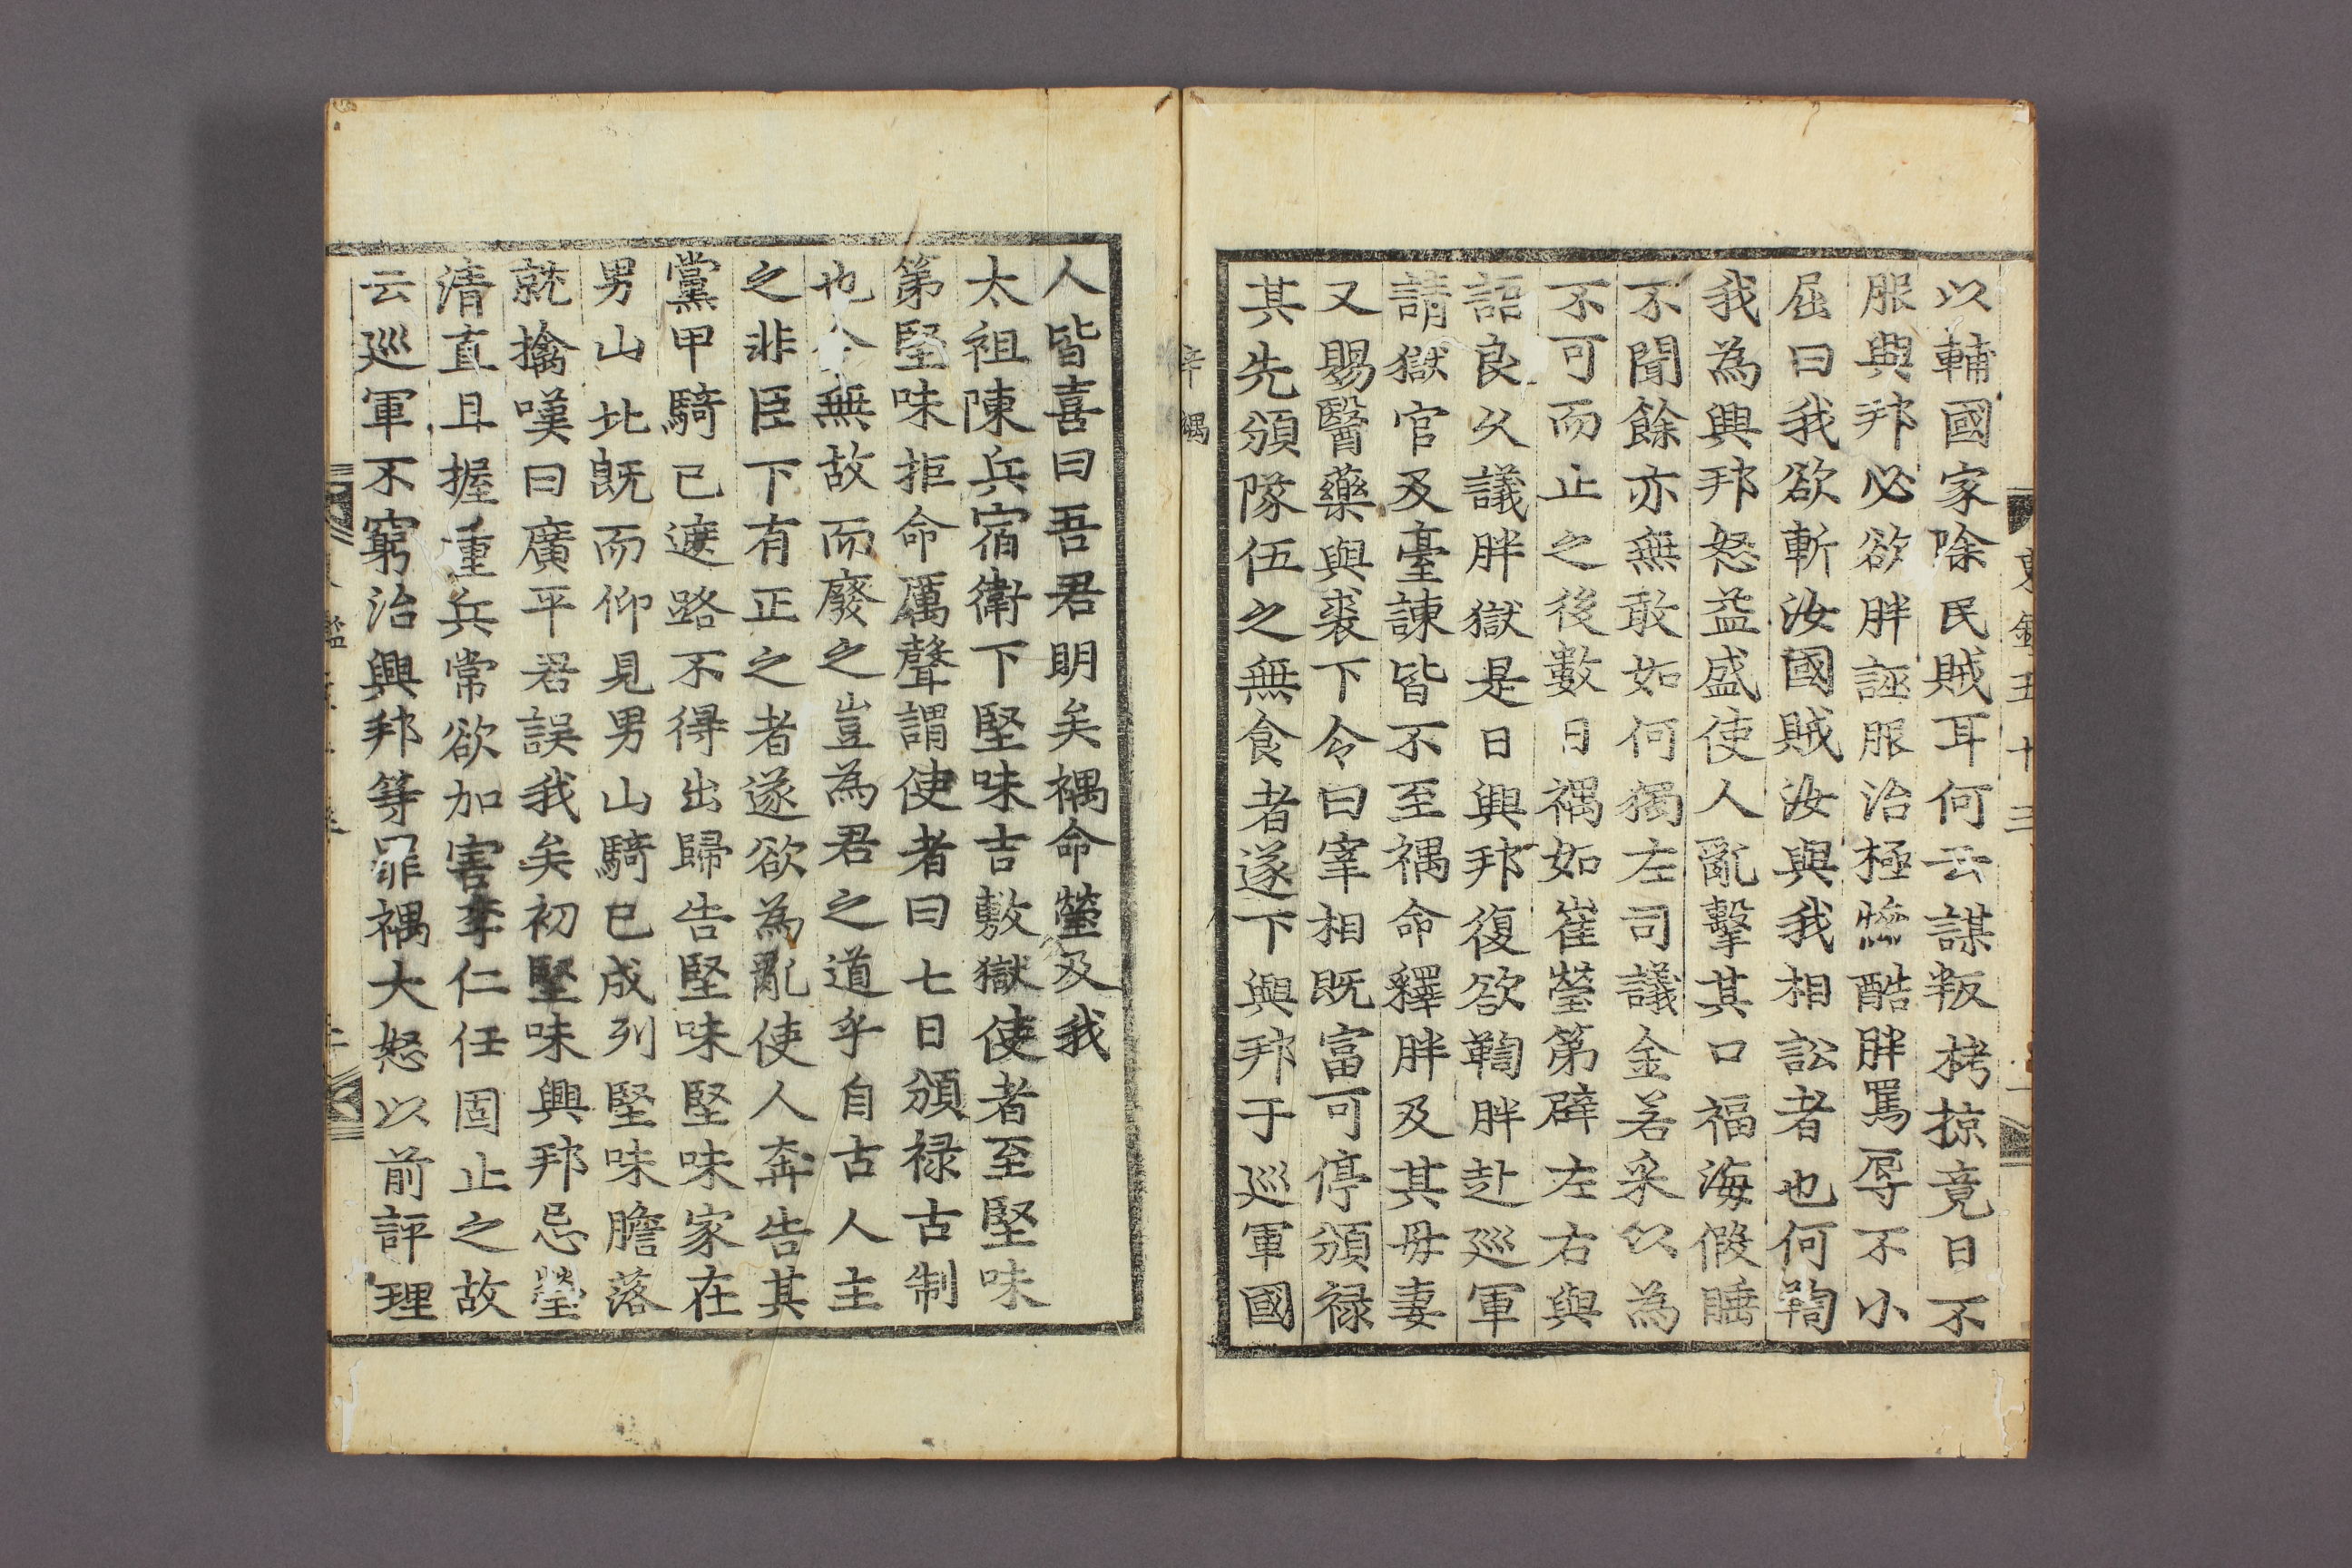 以輔國家除民賊耳何云謀叛栲掠竟日不
服興邦必欲胖誣服治極慘酷胖罵辱不小
屈曰我欲斬汝國賊汝與我相訟者也何鞫
我為興邦怒益盛使人亂擊其口福海假睡
不聞餘亦無敢如何獨左司議金若采以為
不可而止之後數日禑如崔瑩第辟左右與
語良久議胖獄是日興邦復欲鞫胖赴巡軍
請獄官及臺諫皆不至禑命釋胖及其毋妻
又賜醫藥與裘下令曰宰相既富可停頒禄
其先頒隊伍之無食者遂下興邦于巡軍國
辛禑
人皆喜曰吾君明矣禑命瑩及我
太祖陳兵宿衛下堅味吉敷獄使者至堅味
第堅味拒命厲聲謂使者曰七日頒禄古制
也今無故而廢之豈為君之道乎自古人主
之非臣下有正之者遂欲為亂使人奔告其
黨甲騎已遮路不得出歸告堅味堅味家在
男山北既而仰見男山騎已成列堅味膽落
就擒嘆曰廣平君誤我矣初堅味興邦忌瑩
清直且握重兵常欲加害李仁任固止之故
云巡軍不窮治興邦等罪禑大怒以前評理